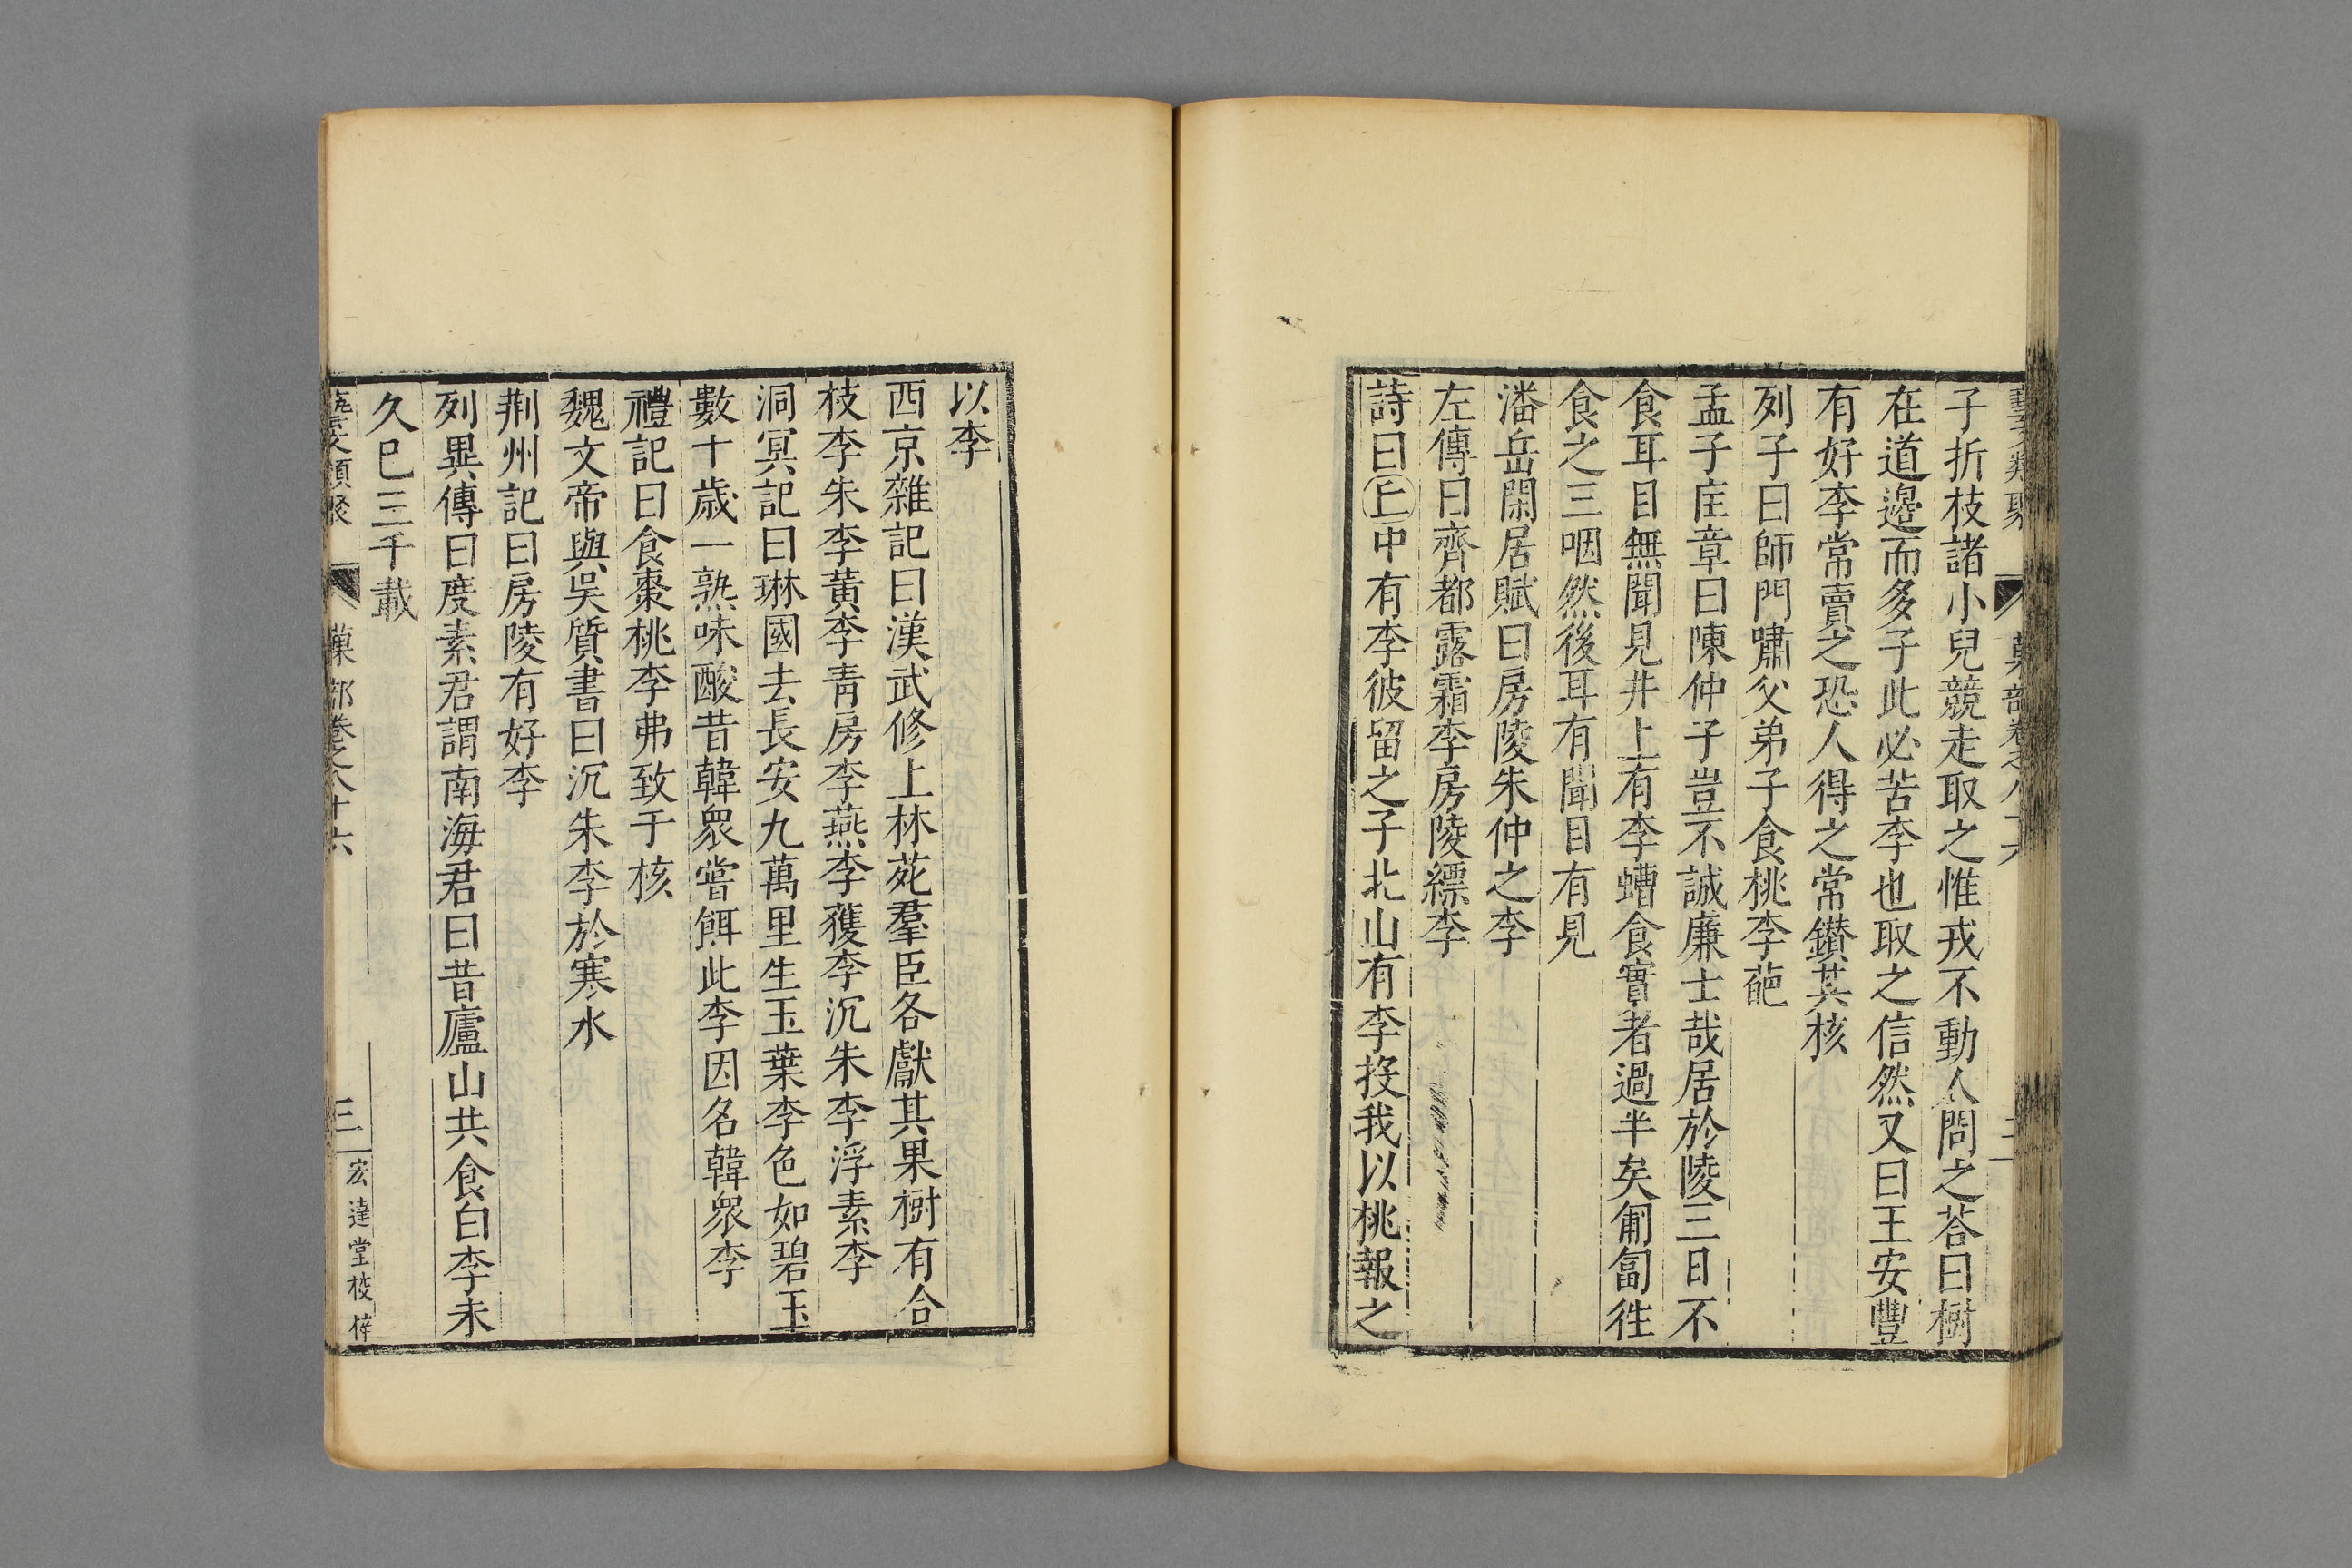 藝文類聚 菓部卷之八十六 二
子折枝諸小兒競走取之惟戎不動人問之荅曰樹
在道邊而多子此必苦李也取之信然又曰王安豐
有好李常賣之恐人得之常鑚其核
列子曰師門嘯父弟子食桃李葩
孟子匡章曰陳仲子豈不誠廉士哉居於陵三日不
食耳目無聞見井上有李螬食實者過半矣匍匐徃
食之三咽然後耳有聞目有見
潘岳閑居賦曰房陵朱仲之李
左傳曰齊都露霜李房陵縹李
詩曰㊤中有李彼留之子北山有李投我以桃報之
以李
西京雜記曰漢武修上林苑羣臣各獻其果樹有合
枝李朱李黃李青房李燕李獲李沉朱李浮素李
洞冥記曰琳國去長安九萬里生玉葉李色如碧玉
數十歲一熟味酸昔韓衆嘗餌此李因名韓衆李
禮記曰食棗桃李弗致于核
魏文帝與吳質書曰沉朱李於寒水
荆州記曰房陵有好李
列異傳曰度素君謂南海君曰昔廬山共食白李未
久巳三千載
藝文類聚 菓部卷之八十六 三 宏達堂校倅